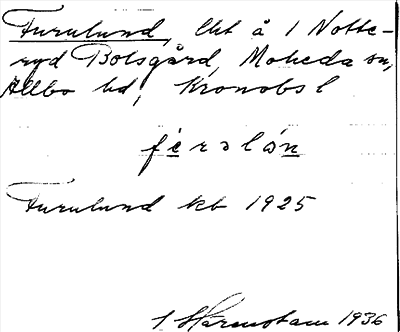 Furulund, lht å 1 Notte-
ryd Bolsgård, Moheda sn,
Allbo hd, Kronobs l
fèrslón
Furulund kb 1925
I Härenstam 1936